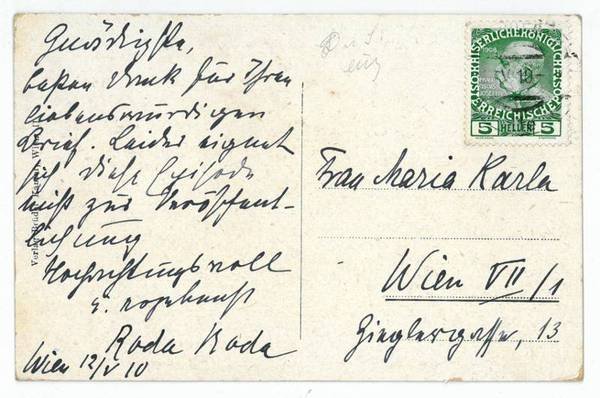 Gnädigste,
besten Dank für Ihren
liebenswürdigen
Brief. Leider eignet
sich diese Episode
nicht zur Veröffent-
lichung
Hochachtungsvoll
Roda Roda
Wien 12/V 10
KAISERLICHE KÖNIGLICHE
ÖSTERREICHISCHE POST
1908
5 HELLER 5
Frau Maria Karla
Wien VII/1
Zieglergasse, 13